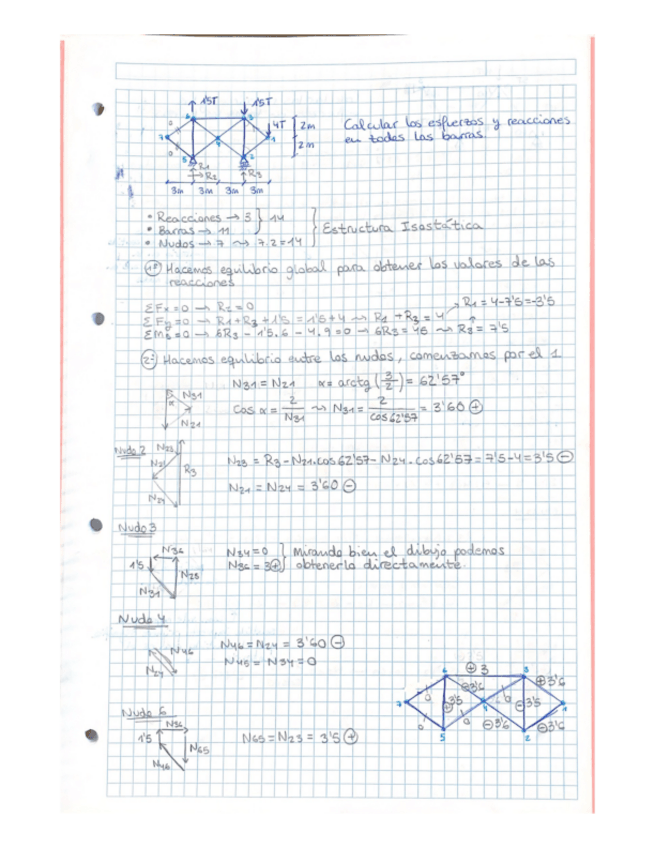 1'5T 1'5T
4T 2m
2m
R1
R2 R3
3m 3m 3m 3m
Calcular los esfuerzos y reacciones
en todas las barras.
• Reacciones → 3 } 14
• Barras → 11
• Nudos → 7 ⇝ 7.2=14
Estructura Isostática
1º Hacemos equilibrio global para obtener los valores de las
reacciones
ΣFx=0 → R2=0
R1=4-7'5=-3'5
ΣFy=0 → R1+R3+1'5=1'5+4 ⇝ R1+R3=4
ΣM5=0 → 6R3-1'5.6-4.9=0 → 6R3=45 ⇝ R3=7'5
2º Hacemos equilibrio entre los nudos, comenzamos por el 1
N31
α
N21
N31=N21 α=arctg(3/2)=62'57º
Cos α=2/N31 ⇝ N31=2/cos62'57=3'60 ⊕
Nudo 2
N23
N21
R3
N24
N23=R3-N21.cos62'57-N24.cos62'57=7'5-4=3'5 ⊖
N21=N24=3'60 ⊖
Nudo 3
N36
1'5
N23
N31
N34=0
N36=3 ⊕
Mirando bien el dibujo podemos
obtenerlo directamente.
Nudo 4
N46
N24
N46=N24=3'60 ⊖
N45=N34=0
Nudo 6
N36
1'5
N65
N46
N65=N23=3'5 ⊕
6 ⊕3 3
⊖3'6 ⊕3'6
7 0 ⊕3'5 4 0 ⊖3'5 1
0 0 ⊖3'6 ⊖3'6
5 2